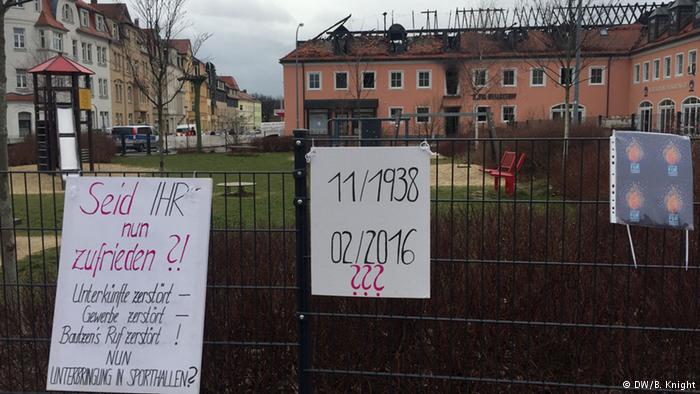 Seid IHR
nun
zufrieden?!
Unterkünfte zerstört –
Gewerbe zerstört –
Bautzen's Ruf zerstört !
NUN
UNTERBRINGUNG IN SPORTHALLEN?
11/1938
02/2016
???
© DW/B. Knight